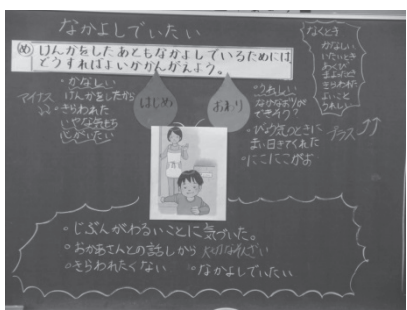 なかよしでいたい
め けんかをしたあともなかよしでいるためには
どうすればよいかかんがえよう。
なくとき
かなしい
いたいとき
あくび
きらわれた
よいこと
うれしい
はじめ
・かなしい
けんかをしたから
マイナス
・きらわれた
いやな気もち
おわり
・うれしい
なかなおりが
できそう?
・びょう気のときに
まい日きてくれた
・にこにこがお
プラス
・じぶんがわるいことに気づいた。
・おかあさんとの話しから
・きらわれたくない ・なかよしでいたい